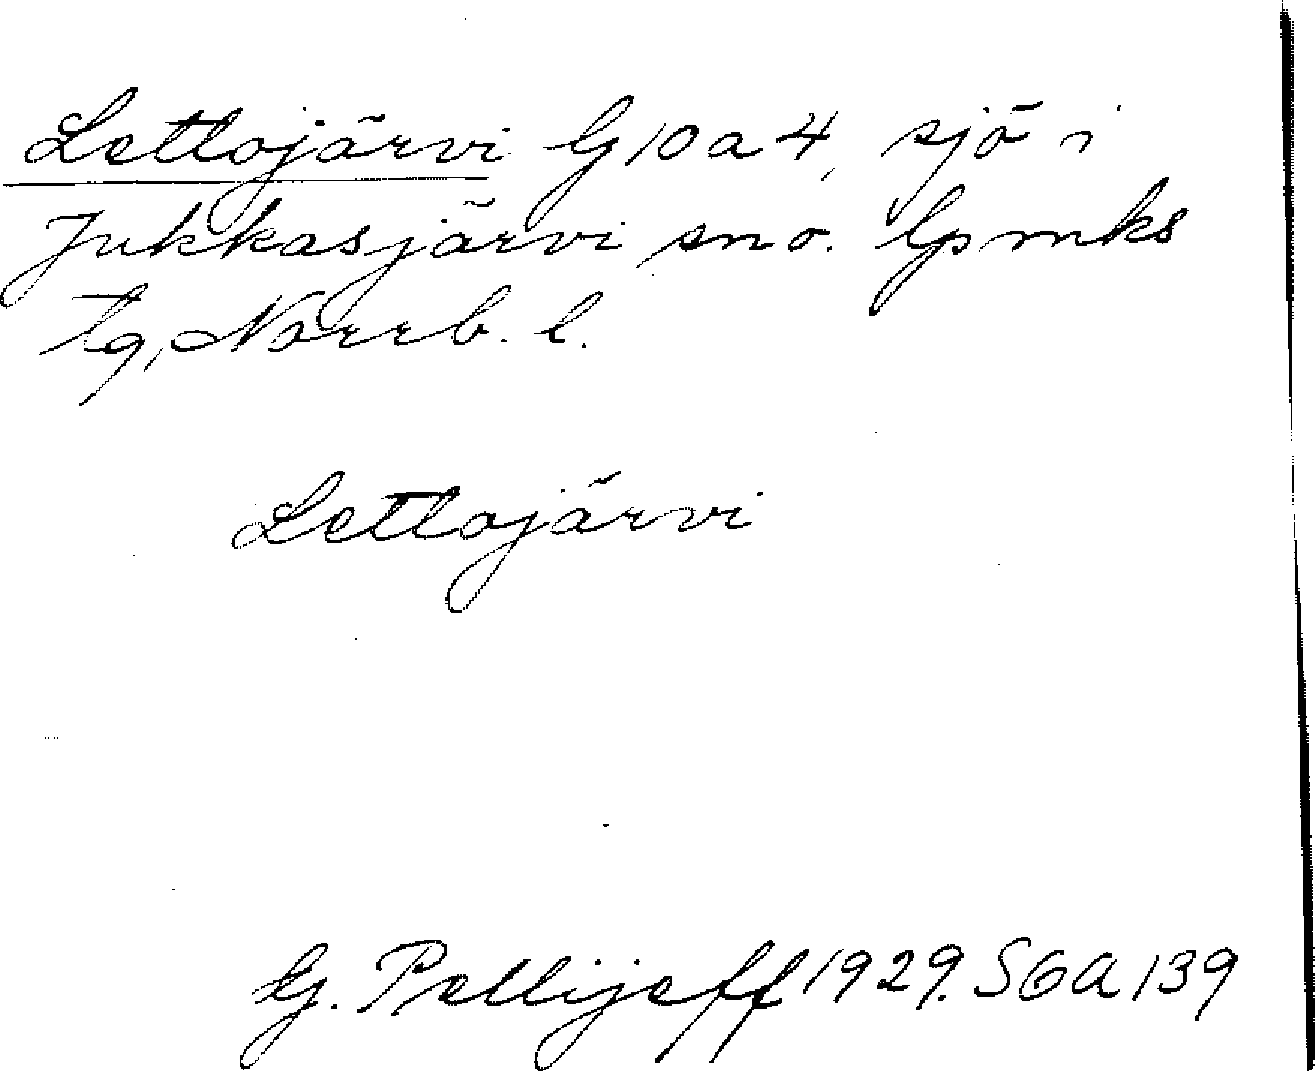 Lettojärvi G10a4, sjö i
Jukkasjärvi sn o. lpmks
tg, Norrb. l.
Lettojärvi
G. Pellijeff 1929. SGA 139